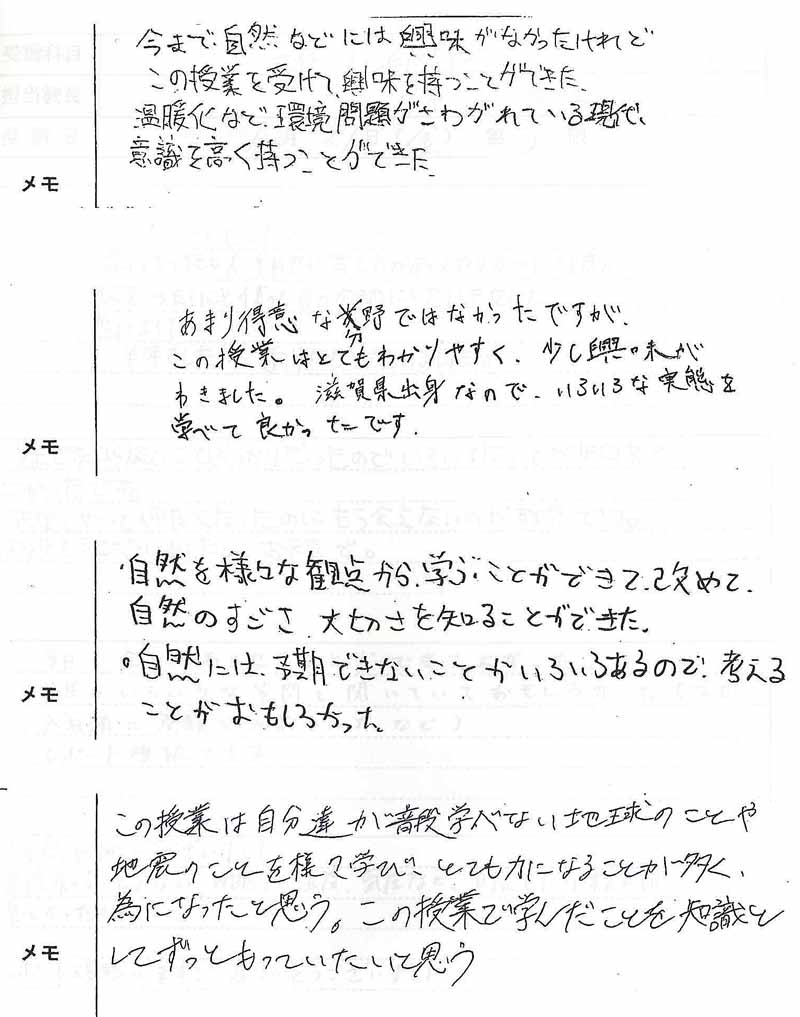 今まで自然などには興味がなかったけれど
この授業を受けて興味を持つことができた。
温暖化など、環境問題がさわがれている現代、
意識を高く持つことができた
メモ
あまり得意な分野ではなかったですが、
この授業はとてもわかりやすく、少し興味が
わきました。滋賀県出身なので、いろいろな実態を
学べて良かったです。
メモ
・自然を様々な観点から、学ぶことができて、改めて、
自然のすごさ、大切さを知ることができた。
・自然には、予期できないことがいろいろあるので、考える
ことがおもしろかった。
メモ
この授業は自分達が普段学べない地球のことや
地震のことを様々学び、とても力になることが多く、
為になったと思う。この授業で学んだことを知識と
してずっともっていたいと思う
メモ